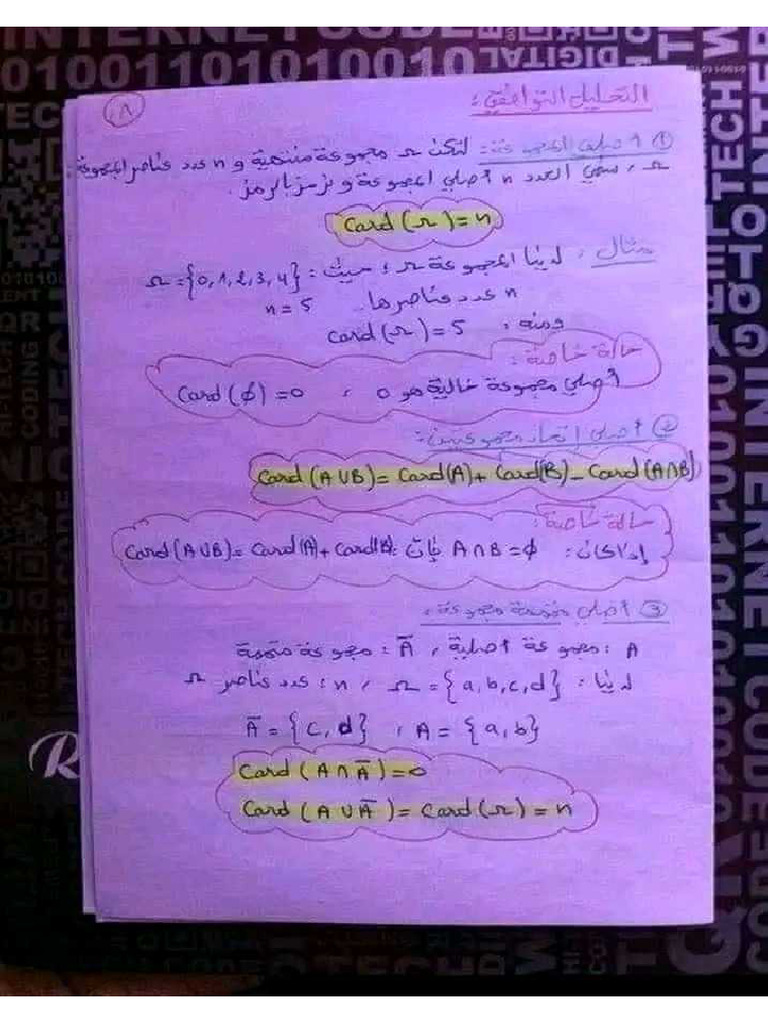 INTERNET CODE
0100110101010010
DIGITAL
التحليل التوافقي:
① أصلي المجموعة: لتكن Ω مجموعة منتهية و n عدد عناصر المجموعة
Ω، نسمي العدد n أصلي المجموعة و نرمز بالرمز.
Card (Ω) = n
مثال: لدينا المجموعة Ω؛ حيث: Ω = {0, 1, 2, 3, 4}
n عدد عناصرها. n = 5
ومنه: Card (Ω) = 5
حالة خاصة:
أصلي مجموعة خالية هو 0 ، Card (ϕ) = 0
② أصلي إتحاد مجموعتين:
Card (A ∪ B) = Card (A) + Card (B) - Card (A ∩ B)
حالة خاصة:
إذا كان: A ∩ B = ϕ فإن: Card (A ∪ B) = Card (A) + Card (B)
③ أصلي متممة مجموعة:
A: مجموعة أصلية، Ā: مجموعة متممة
لدينا: Ω = {a, b, c, d} ، n: عدد عناصر Ω
A = {a, b} ، Ā = {c, d}
Card (A ∩ Ā) = 0
Card (A ∪ Ā) = Card (Ω) = n